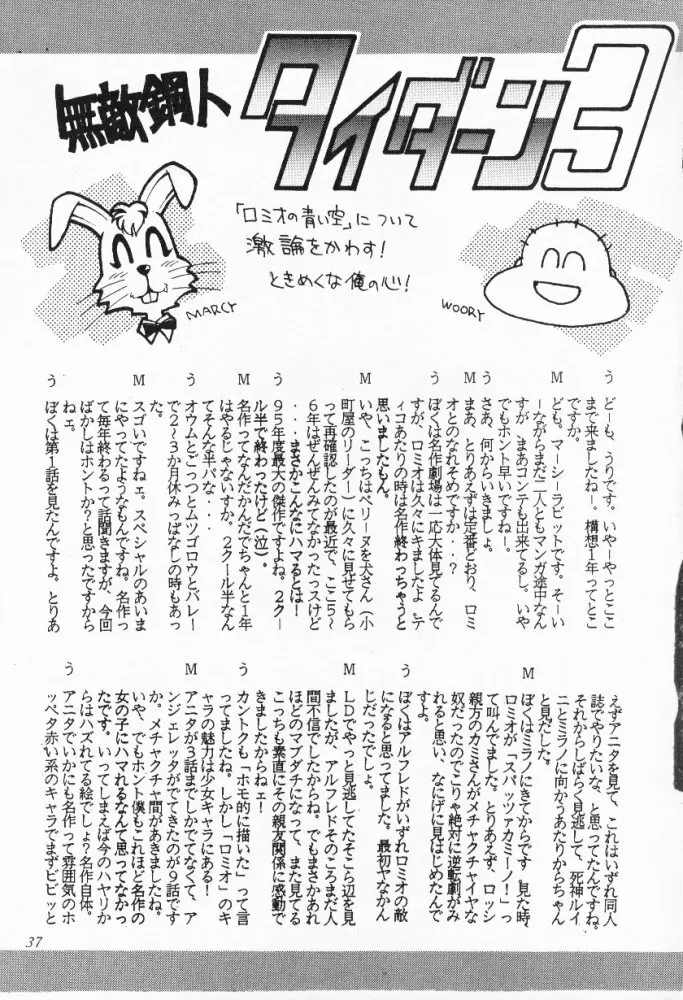 無敵鋼人
タイダーン3
「ロミオの青い空」について
激論をかわす!
ときめくな俺の心!
MARCY
WOORY
う ど―も、うりです。いや―やっとここ
まで来ましたねー。構想1年ってとこ
ですか。
M ども。マーシーラビットです。そーい
ーながらまだ二人ともマンガ途中なん
すが、まあコンテも出来てるし。いや
でもホント早いですねー。
う さあ、何からいきましょ。
M まあ、とりあえずは定番どおり、ロミ
オとのなれそめですか・・?
う ぼくは名作劇場は一応大体見てるんで
すが、ロミオは久々にキましたよ。テ
ィコあたりの時は名作終わっちゃうと
思いましたもん。
M いや、こっちはペリーヌを犬さん(小
町屋のリーダー)に久々に見せてもら
って再確認したのが最近で、ここ5〜
6年はぜんぜんみてなかったっスけど
・・・まさかこんなにハマるとは!
う 95年度最大の傑作ですよね。2クー
ル半で終わったけど(泣)。
M 名作ってなんだかんだでちゃんと1年
はやるじゃないすか。2クール半なん
てそんな半パな・・・
う オウムとごっつとムツゴロウとバレー
で2〜3か月休みっぱなしの時もあっ
た。
M スゴいですねェ。スペシャルのあいま
にやってたようなもんですね。名作っ
て毎年終わるって話聞きますが、今回
ばかしはホントか?と思ったですから
ねェ。
う ぼくは第1話を見たんですよ。とりあ
えずアニタを見て、これはいずれ同人
誌でやりたいな、と思ってたんですね。
それからしばらく見逃して、死神ルイ
ニとミラノに向かうあたりからちゃん
と見だした。
M ぼくはミラノにきてからです 見た時、
ロミオが「スパッツァカミーノ!」っ
て叫んでました。とりあえず、ロッシ
親方のカミさんがメチャクチャイヤな
奴だったのでこりゃ絶対に逆転劇がみ
れると思い、なにげに見はじめたんで
すよ。
う ぼくはアルフレドがいずれロミオの敵
になると思ってました。最初ヤなかん
じだったでしょ。
M LDでやっと見逃してたそこら辺を見
ましたが、アルフレドそのころまだ人
間不信でしたからね。でもまさかあれ
ほどのマブダチになって、また見てる
こっちも素直にその親友関係に感動で
きましたからねェ!
う カントクも「ホモ的に描いた」って言
ってましたね。しかし「ロミオ」のキ
ャラの魅力は少女キャラにある!
M アニタが3話までしかでてなくて、ア
ンジェレッタがでてきたのが9話です
か。メチャクチャ間がありましたね。
いや、でもホント僕もこれほど名作の
女の子にハマれるなんて思ってなかっ
たです。いってしまえば今のハヤリか
らはハズれてる絵でしょ?名作自体。
う アニタでいかにも名作って雰囲気のホ
ッペタ赤い系のキャラでまずビビッと
37